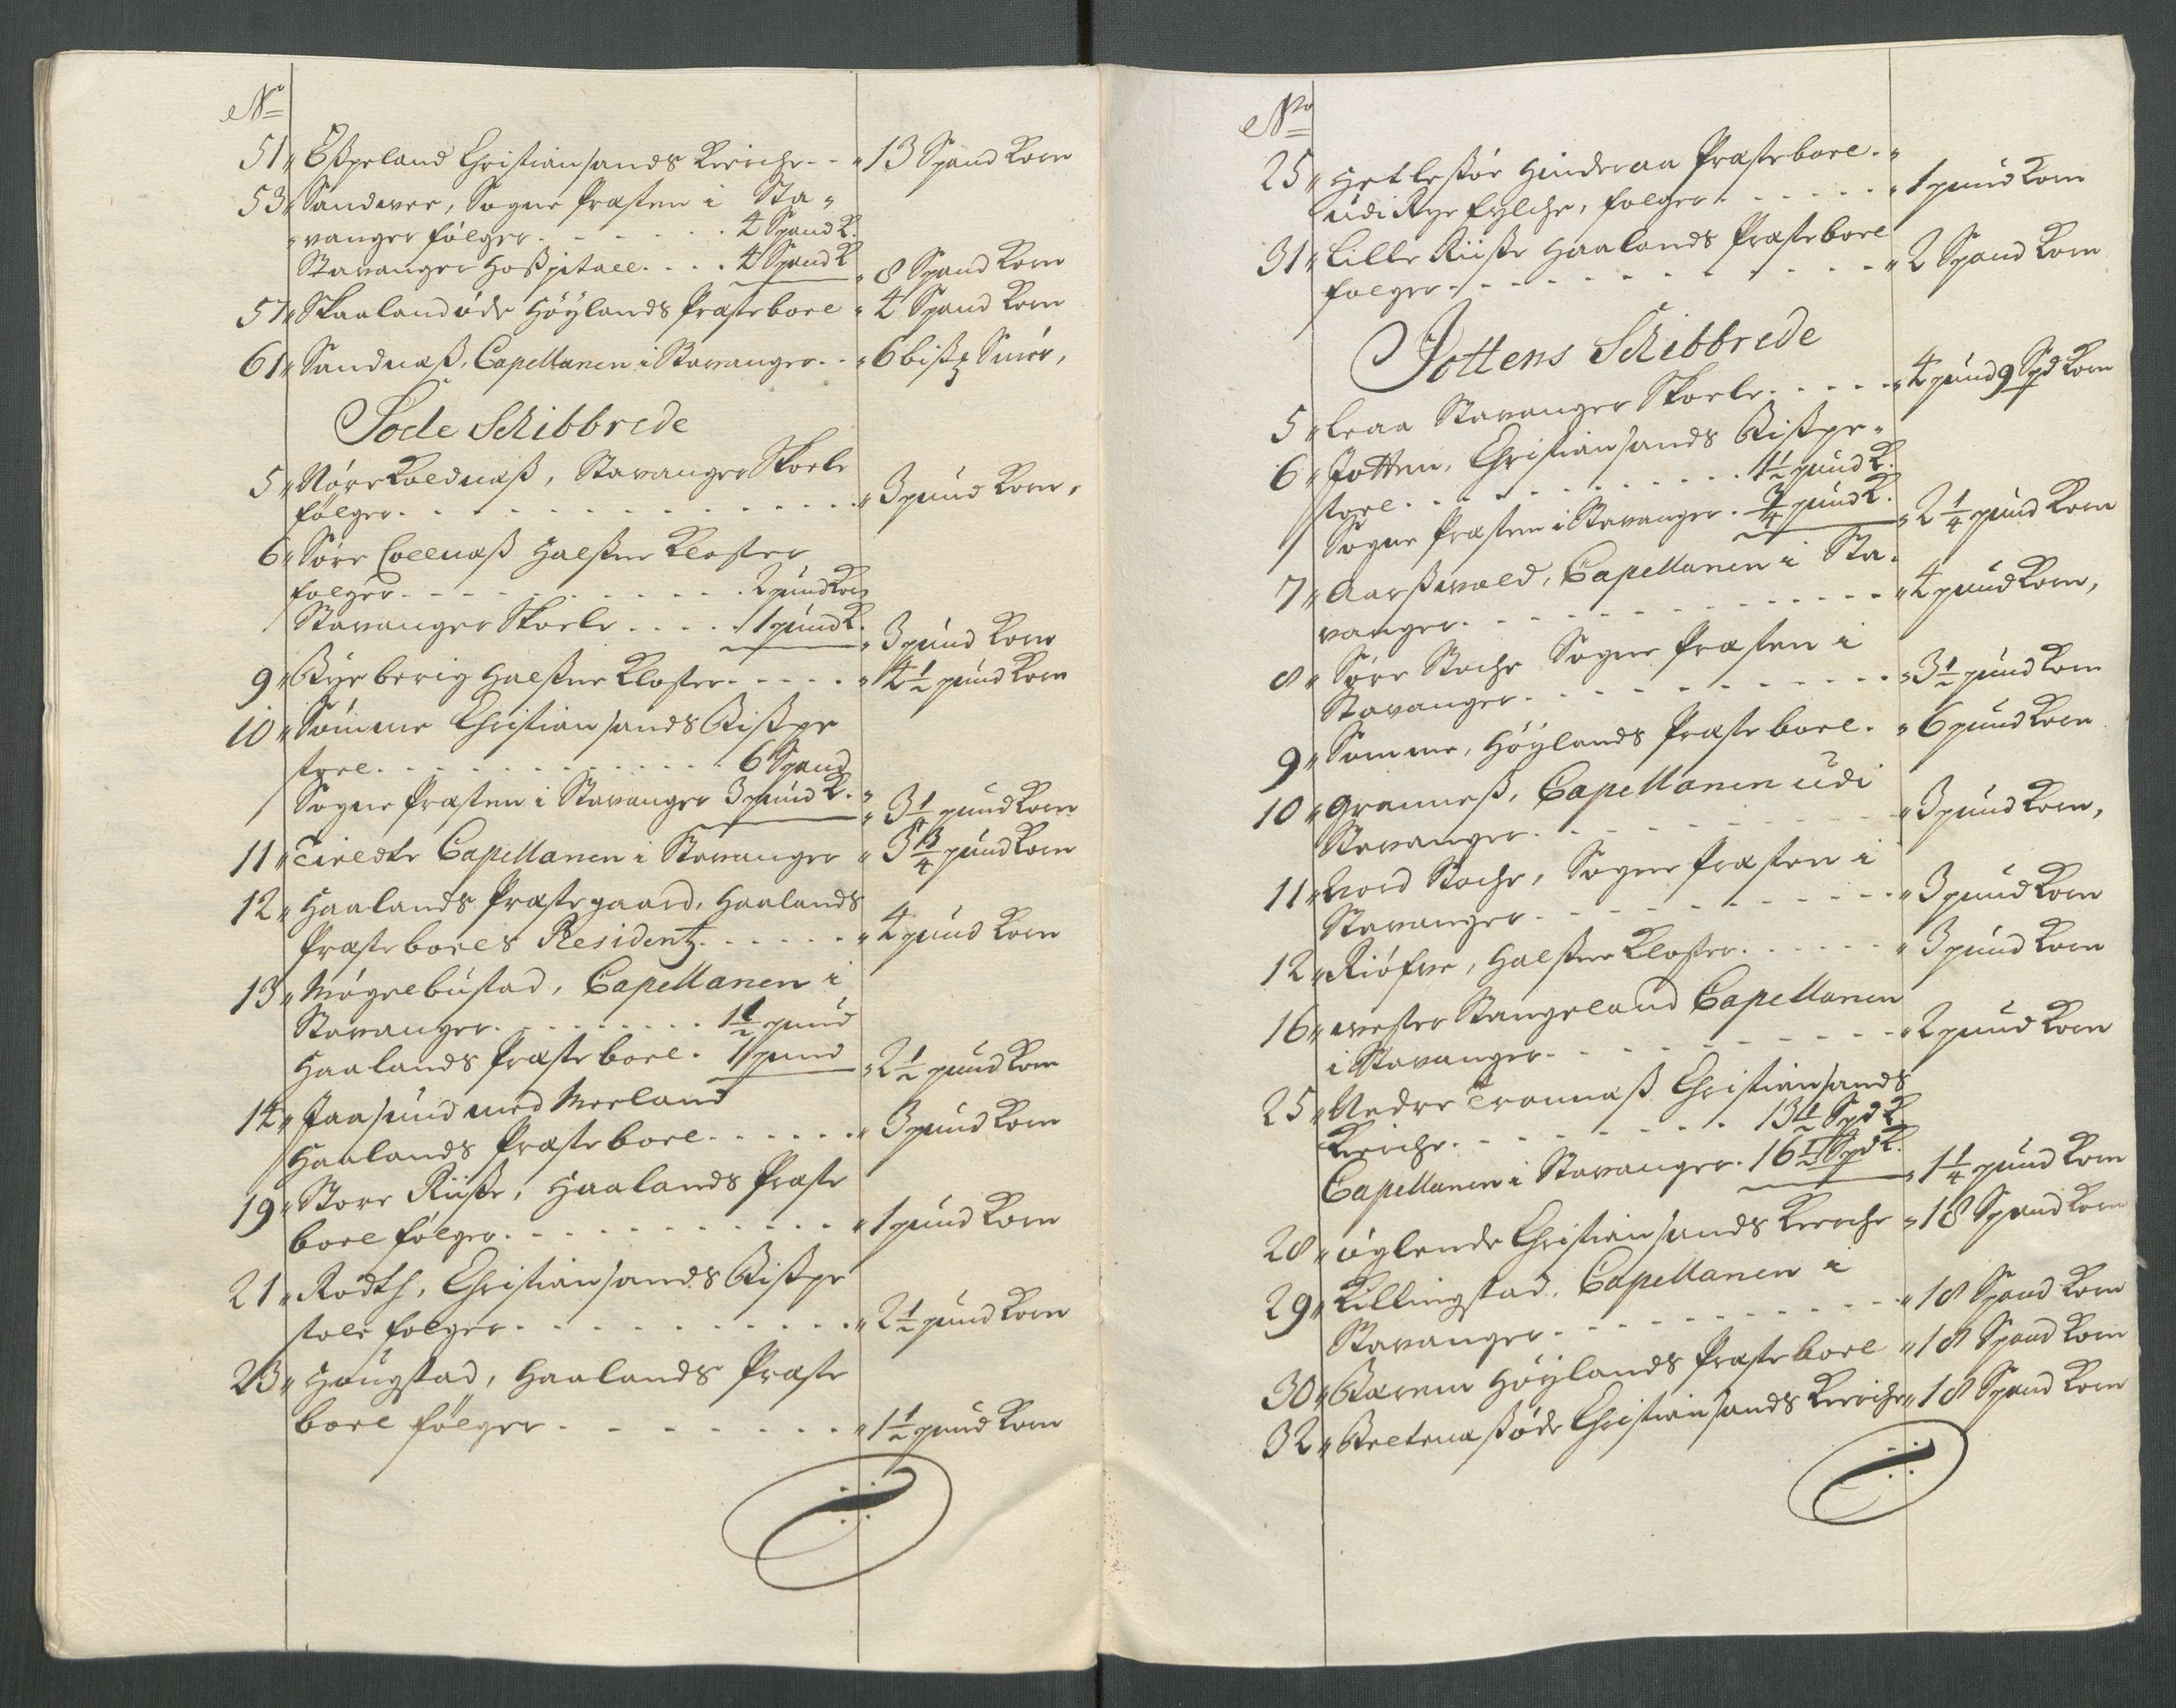 No
51 „ Eßpeland Christiansands Kierche . . „ 13 Spand Korn
53 „ Sandwee, Sogne Præsten i Sta-
vanger følger . . . . . . 4 Spand K.
Stavanger Hoßpitael . . . . 4 Spand K „ 8 Spand Korn
57 „ Skaaland øde Höÿlands Præsteboel „ 4 Spand Korn
61 „ Sandnæß, Capellanen i Stavanger . . „ 6 biß℔ Smör,
Sole Schibbrede
5 „ Nörre Koldnæß, Stavanger Skoele
følger . . . . . . . . . . „ 3 pund Korn,
6 „ Sörr Collnæß Halßne Kloster
følger . . . . . . . . 2 pund Korn
Stavanger Skoele . . . . 1 pund K. „ 3 pund Korn
9 „ Bÿeberig Halßne Kloster . . . . „ 4 1/2 pund Korn
10 „ Sömme Christiansands Bißpe
stoel . . . . . . . . . . 6 Spand
Sogne Præsten i Stavanger 3 pund K. „ 3 1/4 pund Korn
11 „ Tieldte Capellanen i Stavanger „ 3 3/4 pund Korn
12 „ Haalands Præstegaard, Haalands
Præsteboels Residentz . . . . . „ 4 pund Korn
13 „ Mögelbustad, Capellanen i
Stavanger . . . . . . . . 1 1/2 pund
Haalands Præsteboel . 1 pund „ 2 1/2 pund Korn
14 „ Jaasund med Meeland
Haalands Præsteboel . . . . . . „ 3 pund Korn
19 „ Store Riiße, Haalands Præste
boel følger . . . . . . . . . „ 1 pund Korn
21 „ Rödth, Christiansands Bißpe
stoli følger . . . . . . . . . „ 2 1/2 pund Korn
23 „ Haugstad, Haalands Præste
boel følger . . . . . . . . „ 1 1/2 pund Korn
No
25 „ Hetlestör Hinderaa Præsteboel . „
udi Rÿe fÿlche, følger . . . . . . „ 1 pund Korn
31 „ Lille Riiße Haalands Præsteboel
følger . . . . . . . . . . „ 2 Spand Korn
Jottens Schibbrede
5 „ Leaa Stavanger Skoele . . . . . „ 4 pund 9 Spd Korn
6 „ Jotten, Christiansands Bißpe-
stoel . . . . . . . . . . . 1 1/2 pund K.
Sogne Præsten i Stavanger . 3/4 pund K. „ 2 1/4 pund Korn
7 „ Aarßwold, Capellanen i Sta-
vanger . . . . . . . . . . . „ 4 pund Korn,
8 „ Sörr Stoche Sogne Præsten i
Stavanger . . . . . . . . . . „ 3 1/2 pund Korn
9 „ Somme, Höÿlands Præsteboel . „ 6 pund Korn
10 „ Granneß, Capellanen udi
Stavanger . . . . . . . . . „ 3 pund Korn,
11 „ Nord Stoche, Sogne Præsten i
Stavanger . . . . . . . . . . „ 3 pund Korn
12 „ Riöfne, Halßne Kloster . . . . . . „ 3 pund Korn
16 „ Wester Stangeland Capellanen
i Stavanger . . . . . . . . . . „ 2 pund Korn
25 „ Nedre Tronnæß Christiansands
Kierche . . . . . . . . . 13 1/2 Spd K
Capellanen i Stavanger . 16 1/2 Spd K. „ 1 1/4 pund Korn
28 „ öglende Christiansands Kierche „ 18 Spand Korn
29 „ Killingstad, Capellanen i
Stavanger . . . . . . . . . . „ 18 Spand Korn
30 „ Bærem Höÿlands Præsteboel „ 18 Spand Korn
32 „ Breltenæß öde Christiansands Kierche „ 18 Spand Korn